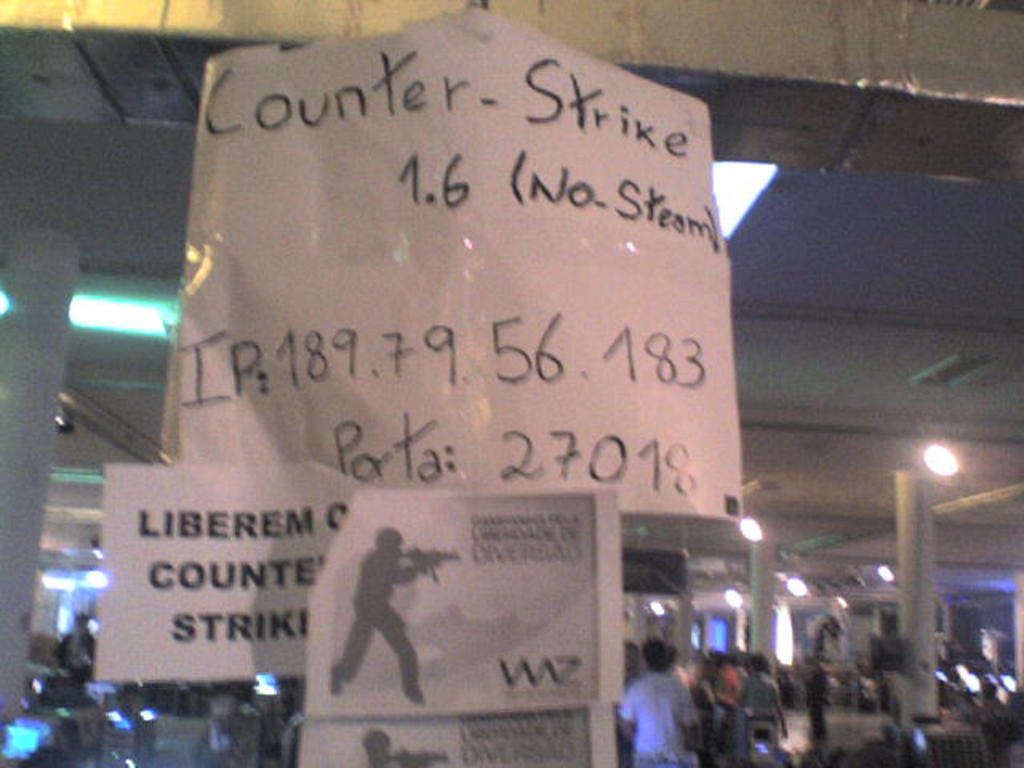 Counter-Strike
1.6 (No-Steam)
IP: 189.79.56.183
Porta: 27018
LIBEREM O
COUNTE
STRIKE
CAMPANHA PELA
LIBERDADE DE
DIVERSÃO
LIBERDADE DE
DIVERSÃO